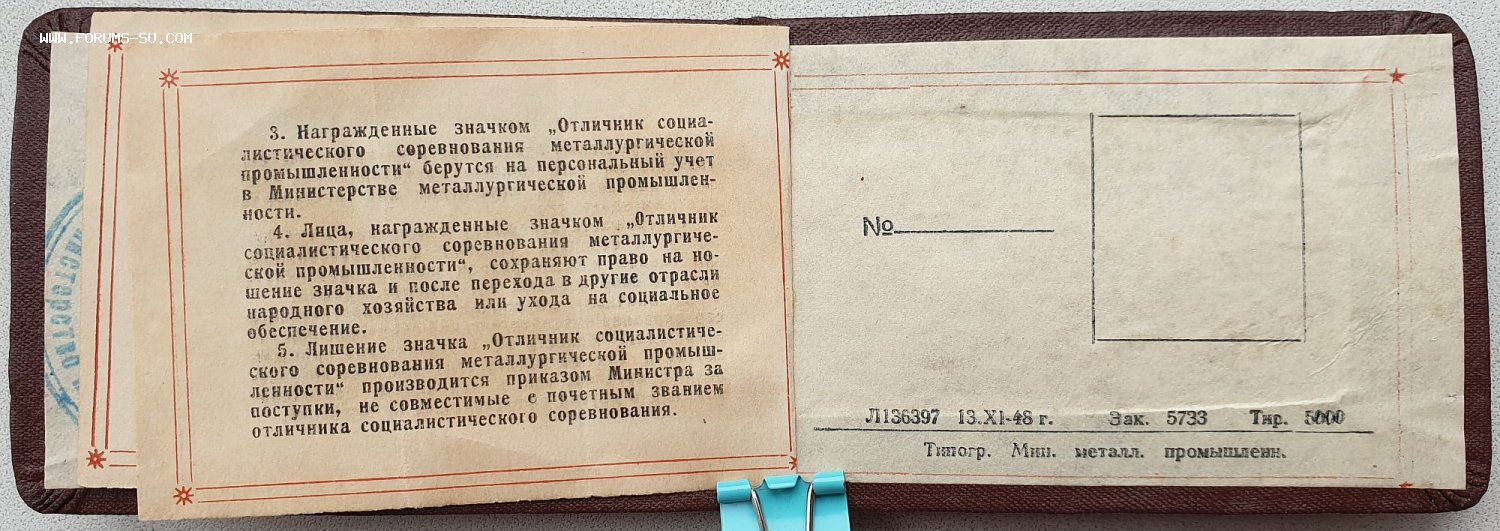 WWW.FORUMS-SU.COM
3. Награжденные значком „Отличник социа-
листического соревнования металлургической
промышленности“ берутся на персональный учет
в Министерстве металлургической промышлен-
ности.
4. Лица, награжденные значком „Отличник
социалистического соревнования металлургиче-
ской промышленности“, сохраняют право на но-
шение значка и после перехода в другие отрасли
народного хозяйства или ухода на социальное
обеспечение.
5. Лишение значка „Отличник социалистиче-
ского соревнования металлургической промыш-
ленности“ производится приказом Министра за
поступки, не совместимые с почетным званием
отличника социалистического соревнования.
№
Л136397 13.XI-48 г. Зак. 5733 Тир. 5000
Типогр. Мин. металл. промышленн.